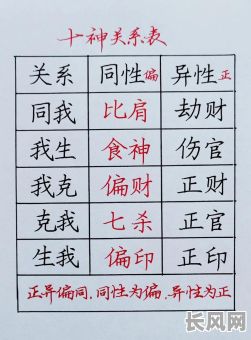 十神关系表
关系 同性偏 异性正
同我 比肩 劫财
我生 食神 伤官
我克 偏财 正财
克我 七杀 正官
生我 偏印 正印
正异偏同.同性为偏.异性为正
长风网